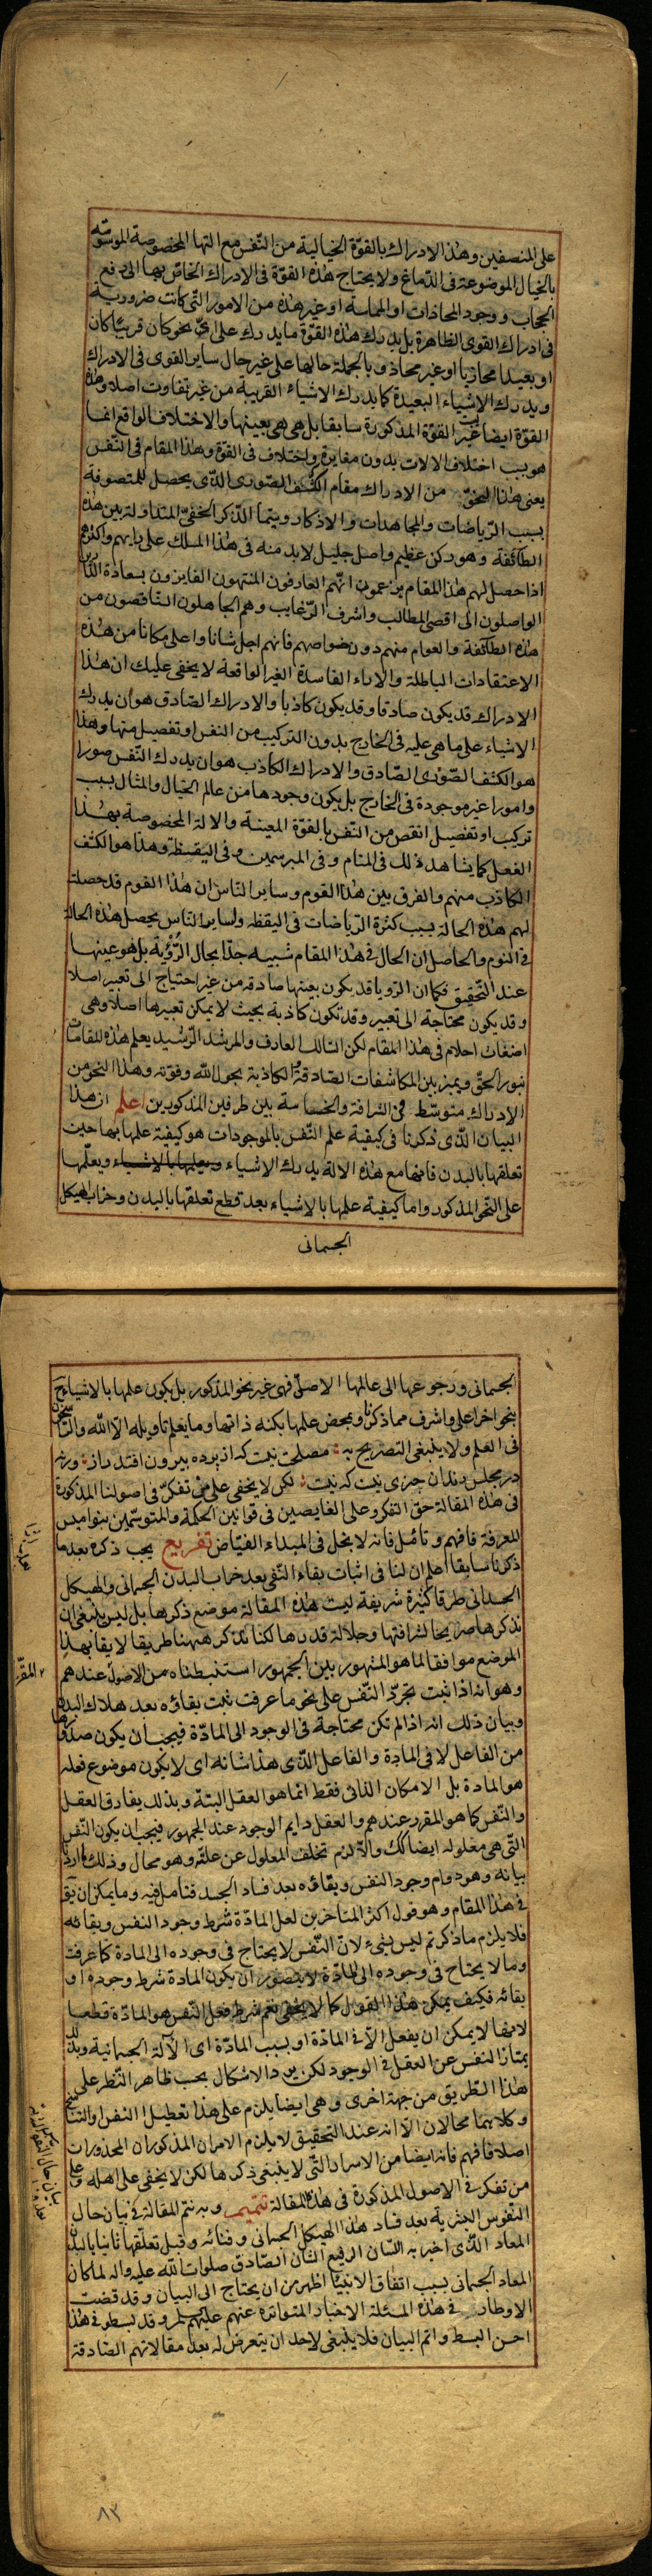 على المنصفين وهذا الادراك بالقوّة الخيالية من النّفس مع التها المخصوصة الموسومة
بالخيال الموضوعة فى الدّماغ ولا يحتاج هذه القوّة فى الادراك الخاصّ بها الى رفع
الحجاب ووجود المحاذات او المماسة او غير هذه من الامور الّتى كانت ضرورية
فى ادراك القوى الظاهرة بل يدرك هذه القوّة ما يدرك على اىّ نحو كان قريبًا كان
او بعيدا محاذيا او غير محاذ وبالجملة حالها على غير حال ساير القوى فى الادراك
ويدرك الاشياء البعيدة كما يدرك الاشياء القريبة من غير تفاوت اصلا وهذه
القوّة ايضا ليست غير القوّة المذكورة سابقا بل هى هى بعينها والاختلاف الواقع انما
هو بسبب اختلاف الالات بدون مغايرة واختلاف فى القوّة وهذا المقام فى النّفس
يعنى هذا النحو من الادراك مقام الكشف الصّورى الّذى يحصل للمتصوفة
بسبب الرّياضات والمجاهدات والاذكار وسيّما الذّكر الخفىّ المتداولة بين هذه
الطائفة وهو ركن عظيم واصل جليل لابد منه فى هذا المسلك على رايهم واكثرهم
اذا حصل لهم هذا المقام يزعمون انّهم العارفون المنتهون الفايزون بسعادة الدّارين
الواصلون الى اقصى المطالب واشرف الرّغايب وهم الجاهلون النّاقصون من
هذه الطائفة والعوام منهم دون خواصهم فانهم اجل شانا واعلى مكانا من هذه
الاعتقادات الباطلة والاراء الفاسدة الغير الواقعة لا يخفى عليك ان هذا
الادراك قد يكون صادقا وقد يكون كاذبا والادراك الصّادق هو ان يدرك
الاشياء على ما هى عليه فى الخارج بدون التركيب من النفس او تفصيل منها وهذا
هو الكشف الصّورى الصّادق والادراك الكاذب هو ان يدرك النّفس صورا
وامورا غير موجودة فى الخارج بل يكون وجودها من عالم الخيال والمثال بسبب
تركيب او تفصيل انقص من النّفس بالقوّة المعينة والالة المخصوصة بهذا
الفعل كما يشاهد ذلك فى المنام وفى المبرسمين وفى اليقظة وهذا هو الكشف
الكاذب منهم والفرق بين هذا القوم وساير النّاس ان هذا القوم قد حصلت
لهم هذه الحالة بسبب كثرة الرّياضات فى اليقظه ولساير النّاس يحصل هذه الحالة
فى النوم والحاصل ان الحال فى هذا المقام شبيه جدّا بحال الرّؤية بل هو عينها
عند التّحقيق فكما ان الرّويا قد يكون بعينها صادقه من غير احتياج الى تعبير اصلا
وقد يكون محتاجة الى تعبير وقد تكون كاذبة بحيث لا يمكن تعبيرها اصلا وهى
اضغاث احلام فى هذا المقام لكن السّالك العارف والمرشد الرّشيد يعلم هذه المقامات
بنور الحقّ ويميز بين المكاشفات الصّادقة والكاذبة بحول اللّه وقوّته وهذا النحو من
الادراك متوسّط فى الشرافة والخساسة بين طرفين المذكورين اعلم ان هذا
البيان الّذى ذكرنا فى كيفية علم النّفس بالموجودات هو كيفية علمها بها حين
تعلقها بالبدن فانها مع هذه الالة يدرك الاشياء وبعلمها بالاشياء ويعلّمها
على النّحو المذكور واما كيفية علمها بالاشياء بعد قطع تعلّقها بالبدن وخراب الهيكل
الجسمانى
الجسمانى ورجوعها الى عالمها الاصلىّ فهى غير نحو المذكور بل يكون علمها بالاشياء ح
بنحو اخر اعلى واشرف مما ذكرنا وبمحض علمها بكنه ذاتها وما يعلم تاويله الّا اللّه والرّاسخون
فى العلم ولا ينبغى التصريح به مصلحت نيست كه از پرده بيرون افتد راز ورنه
در مجلس رندان خبرى نيست كه نيست لكن لا يخفى على من تفكّر فى اصولنا المذكورة
فى هذه المقالة حقّ التّفكر وعلى الغايصين فى قوانين الحكمة والمتوسّمين بنواميس
المعرفة فافهم وتامّل فانه لا بخل فى المبداء الفيّاض تفريع يجب ذكره بعد ما
ذكرنا سابقا اعلم ان لنا فى اثبات بقاء النّفس بعد خراب البدن الجسمانى والهيكل
الجسدانى طرقا كثيرة شريفة ليست هذه المقالة موضع ذكرها بل ليس ينبغى ان
نذكرها صريحا لشرافتها وجلالة قدرها لكنا نذكر ههنا طريقا لايقا بهذا
الموضع موافقا لما هو المشهور بين الجمهور استنبطناه من الاصول عندهم
وهو انه اذا ثبت تجرّد النّفس على نحو ما عرفت ثبت بقاؤه بعد هلاك البدن
وبيان ذلك انه اذا لم تكن محتاجة فى الوجود الى المادّة فيجب ان يكون صدورها
من الفاعل لا فى المادة والفاعل الّذى هذا شانه اى لا يكون موضوع فعله
هو المادة بل الامكان الذاتى فقط انّما هو العقل البتة وبذلك يفارق العقل
والنّفس كما هو المقرر عندهم والعقل دايم الوجود عند الجمهور فيجب ان يكون النّفس
الّتى هى معلوله ايضا كك والّا لزم تخلف المعلول عن علّته وهو محال وذلك ما اردنا
بيانه وهو دوام وجود النفس وبقاؤه بعد فساد الجسد فتامل فيه وما يمكن ان يق
فى هذا المقام وهو قول اكثر المتاخرين لعل المادّة شرط وجود النفس وبقائه
فلا يلزم ما ذكرتم ليس بشىء لانّ النّفس لا يحتاج فى وجوده الى المادة كما عرفت
وما لا يحتاج فى وجوده الى المادّة لا يتصور ان يكون المادة شرط وجوده او
بقائه فكيف يمكن هذا القول كما لا يخفى نعم شرط فعل النّفس هو المادّة قطعا
لانها لا يمكن ان يفعل الّا فى المادّة او بسبب المادّة اى الآلة الجسمانية وبذلك
يمتاز النفس عن العقل فى الوجود لكن يرد الاشكال بحسب ظاهر النّظر على
هذا الطريق من جهة اخرى وهى ايضا يلزم على هذا تعطيل النفس او التناسخ
وكلاهما محالان الّا انه عند التحقيق لا يلزم الامران المذكوران المحذورات
اصلا فافهم فانه ايضا من الاسرار الّتى لا ينبغى ذكرها لكن لا يخفى على اهله وعلى
من تفكر فى الاصول المذكورة فى هذه المقالة تتميم وبه نتم المقالة فى بيان حال
النفوس البشرية بعد فساد هذا الهيكل الجسمانى وفنائه وقبل تعلّقها ثانيا بالبدن
المعاد الّذى اخبر به اللسان الرفيع الشان الصّادق صلوات اللّه عليه واله لما كان
المعاد الجسمانى بسبب اتفاق الانبيّا اظهر من ان يحتاج الى البيان وقد قضت
الاوطار فى هذه المسئلة الاخبار المتواترة عنهم عليهم السلم وقد بسطو فى هذا
احسن البسط واتم البيان فلا ينبغى لاحد ان يتعرض له بعد مقالاتهم الصّادقة
٨٣